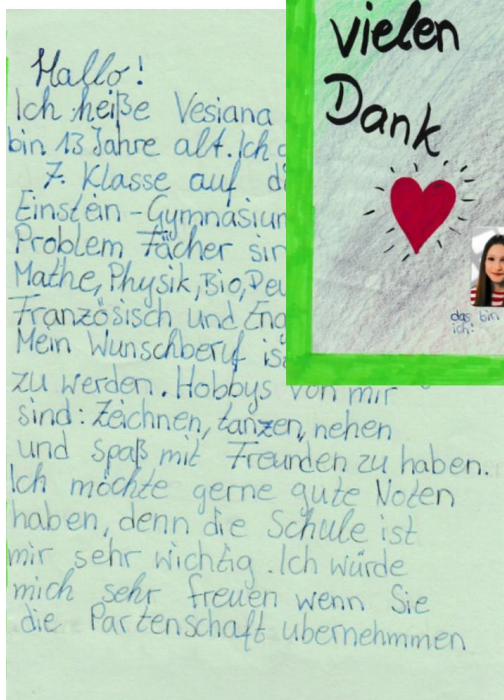 Hallo!
Ich heiße Vesiana
bin 13 Jahre alt. Ich
7. Klasse auf
Einstein-Gymnasium
Problem Fächer
Mathe, Physik, Bio,
Französisch und
Mein Wunschberuf
zu werden. Hobbys von mir
sind: Zeichnen, tanzen, nehen
und spaß mit Freunden zu haben.
Ich möchte gerne gute Noten
haben, denn die Schule ist
mir sehr wichtig. Ich würde
mich sehr freuen wenn Sie
die Partenschaft ubernehmmen
vielen
Dank
das bin
ich!